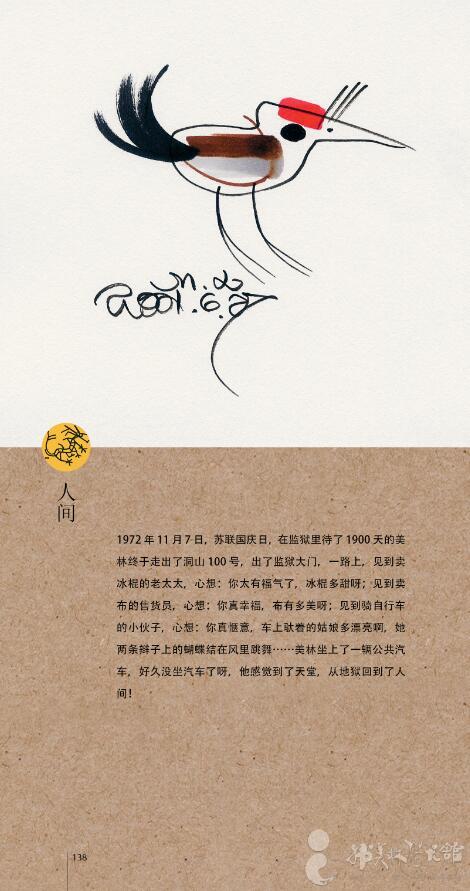 M.L
2001.6.27
人间
1972年11月7日，苏联国庆日，在监狱里待了1900天的美
林终于走出了洞山100号，出了监狱大门，一路上，见到卖
冰棍的老太太，心想：你太有福气了，冰棍多甜呀；见到卖
布的售货员，心想：你真幸福，布有多美呀；见到骑自行车
的小伙子，心想：你真惬意，车上驮着的姑娘多漂亮啊，她
两条辫子上的蝴蝶结在风里跳舞……美林坐上了一辆公共汽
车，好久没坐汽车了呀，他感觉到了天堂，从地狱回到了人
间！
138
韩美林艺术馆